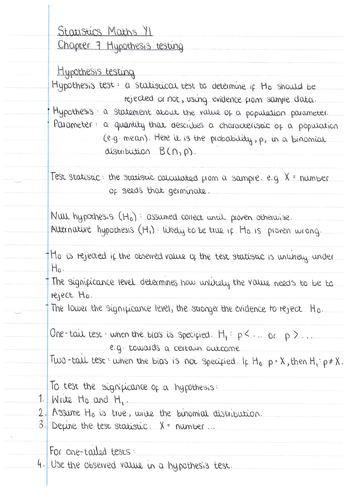 Statistics Maths Y1
Chapter 7 Hypothesis testing
Hypothesis testing
Hypothesis test : a statistical test to determine if H₀ should be
rejected or not, using evidence from sample data.
Hypothesis : a statement about the value of a population parameter.
Parameter : a quantity that describes a characteristic of a population
(e.g. mean). Here it is the probability, p, in a binomial
distribution B(n,p).
Test statistic : the statistic calculated from a sample. e.g. X = number
of seeds that germinate.
Null hypothesis (H₀) : assumed correct until proven otherwise.
Alternative hypothesis (H₁) : likely to be true if H₀ is proven wrong.
H₀ is rejected if the observed value of the test statistic is unlikely under
H₀.
The significance level determines how unlikely the value needs to be to
reject H₀.
The lower the significance level, the stronger the evidence to reject H₀.
One-tail test : when the bias is specified. H₁ : p < ... or p > ...
e.g. towards a certain outcome
Two-tail test : when the bias is not specified. If H₀ p = X, then H₁ : p ≠ X.
To test the significance of a hypothesis :
1. Write H₀ and H₁.
2. Assume H₀ is true, write the binomial distribution.
3. Define the test statistic. X = number ...
For one-tailed tests :
4. Use the observed value in a hypothesis test.